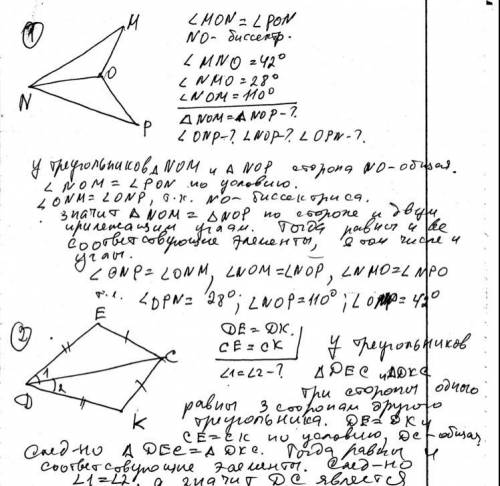 ①
M
O
N
P
∠MON = ∠PON
NO - биссектр.
∠MNO = 42°
∠NMO = 28°
∠NOM = 110°
△NOM = △NOP - ?
∠ONP - ? ∠NOP - ? ∠OPN - ?
У треугольников △NOM и △NOP сторона NO - общая.
∠NOM = ∠PON по условию.
∠ONM = ∠ONP, т.к. NO - биссектриса.
значит △NOM = △NOP по стороне и двум
прилежащим углам. Тогда равны и все
соответсвующие элементы, в том числе и
углы.
∠ONP = ∠ONM, ∠NOM = ∠NOP, ∠NMO = ∠NPO
т.е. ∠OPN = 28°; ∠NOP = 110°; ∠ONP = 42°
②
E
C
D
K
1
2
DE = DK.
CE = CK
∠1 = ∠2 - ?
У треугольников
△DEC и △DKC
три стороны одного
равны 3 сторонам другого
треугольника. DE = DK и
CE = CK по условию, DC - общая
След-но △DEC = △DKC. Тогда равны и
соответсвующие элементы. След-но
∠1 = ∠2, а значит DC является